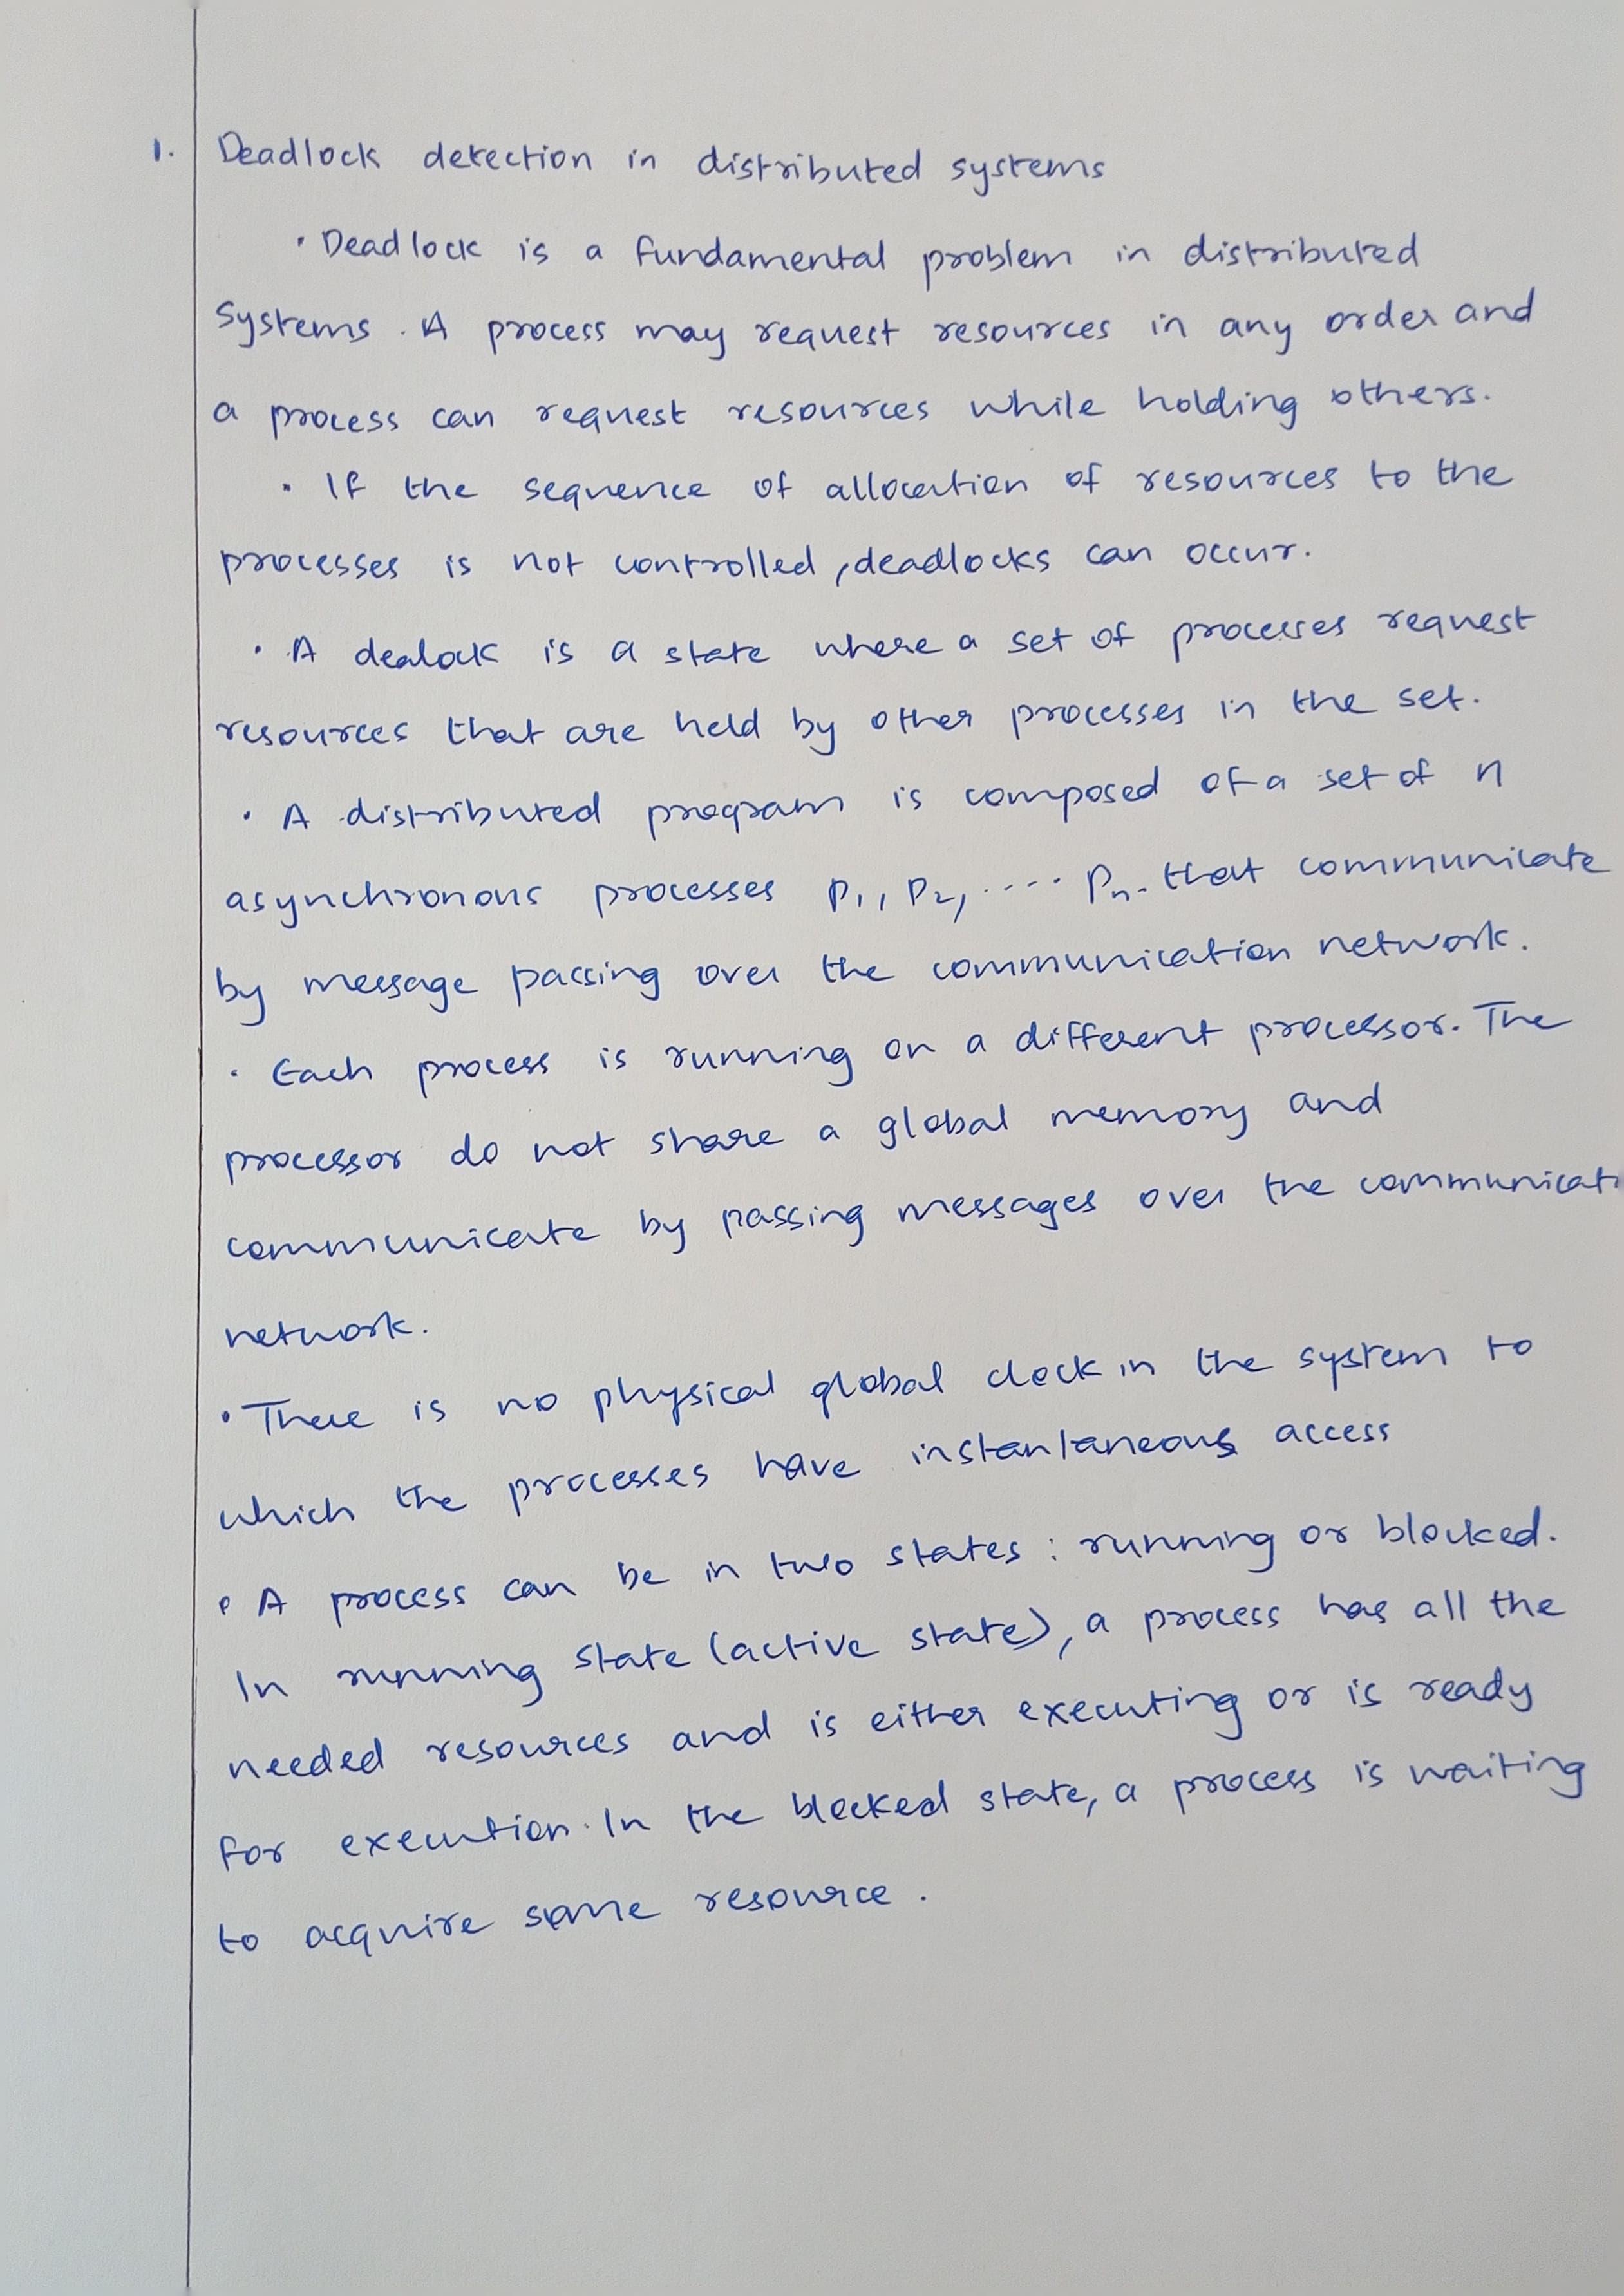 1. Deadlock detection in distributed systems
· Deadlock is a fundamental problem in distributed
systems. A process may request resources in any order and
a process can request resources while holding others.
· If the sequence of allocation of resources to the
processes is not controlled, deadlocks can occur.
· A dealock is a state where a set of processes request
resources that are held by other processes in the set.
· A distributed program is composed of a set of n
asynchronous processes P1, P2, .... Pn. that communicate
by message passing over the communication network.
· Each process is running on a different processor. The
processor do not share a global memory and
communicate by passing messages over the communicati
network.
· There is no physical global clock in the system to
which the processes have instantaneous access
· A process can be in two states : running or blocked.
In running state (active state), a process has all the
needed resources and is either executing or is ready
for execution. In the blocked state, a process is waiting
to acquire some resource.